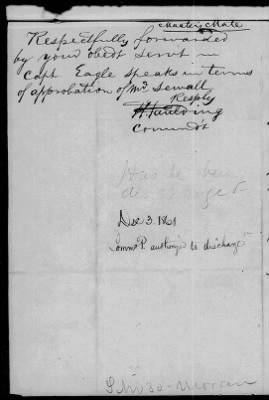 Master's Mate
Respectfully forwarded
by your obedt Servt
Capt Eagle speaks in terms
of approbation of Mr Sewall
Resply
H Paulding
Comndt
Has he been
discharged
Dec 3. 1861
Comm P. authorized to discharge